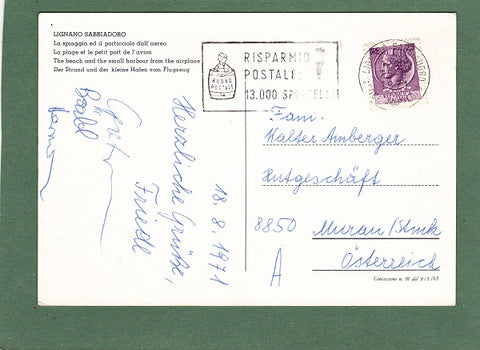 LIGNANO SABBIADORO
La spiaggia ed il porticciolo dall'aereo
La plage et le petit port de l'avion
The beach and the small harbour from the airplane
Der Strand und der kleine Hafen vom Flugzeug
BUONO
POSTALE
RISPARMIO
POSTALE:
13.000 SPORTELLI
Fam.
Walter Amberger
Hutgeschäft
8850 Murau/Stmk
A Österreich
18.8.1971
Herzliche Grüße,
Friedl
Gretl
Concessione n. 91 del 9/3/65